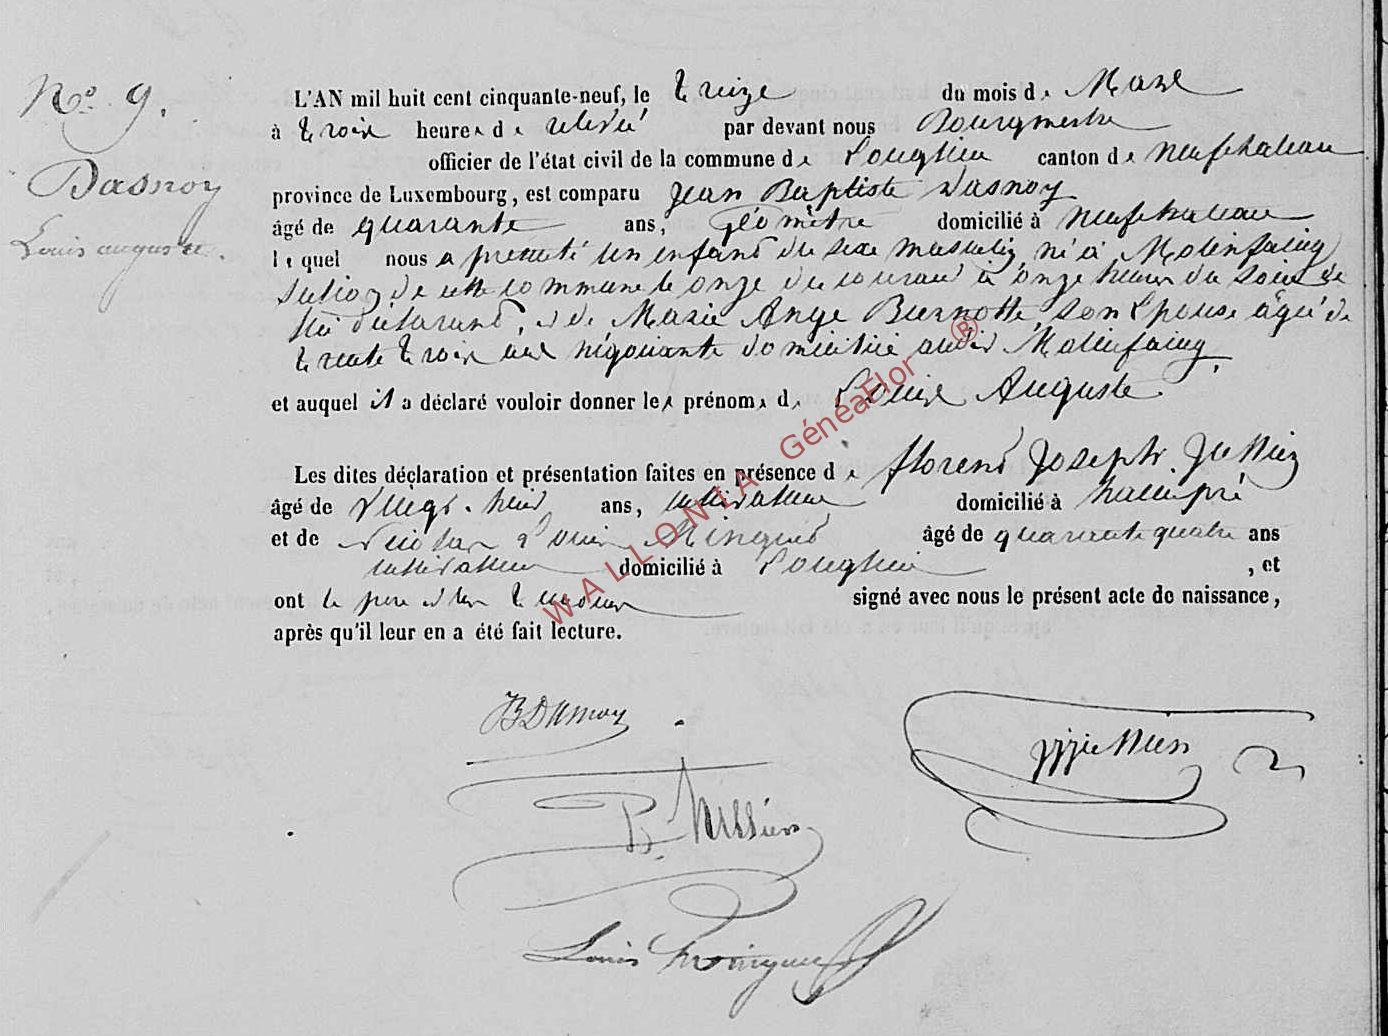 N.º 9.
Dasnoy
Louis auguste.
L'AN mil huit cent cinquante-neuf, le treize du mois de Mars
à trois heures de relevée par devant nous Bourgmestre
officier de l'état civil de la commune de Longlier canton de Neufchateau
province de Luxembourg, est comparu Jean Baptiste Dasnoy
âgé de quarante ans, géomètre domicilié à Neufchateau
lequel nous a présenté un enfant du sexe masculin, né à Molinfaing
section de cette commune le onze du courant à onze heures du soir de
lui déclarant, et de Marie Ange Burnotte, son épouse âgée de
trente trois ans négociante domiciliée audit Molinfaing,
et auquel il a déclaré vouloir donner les prénoms de Louis Auguste
Les dites déclaration et présentation faites en présence de florent Joseph
âgé de vingt-huit ans, cultivateur domicilié à hamipré
et de Louis âgé de quarante quatre ans
cultivateur domicilié à Longlier, et
ont le père et les témoins signé avec nous le présent acte de naissance,
après qu'il leur en a été fait lecture.
BDasnoy
Louis
WALLONIA GénéaFlor ®